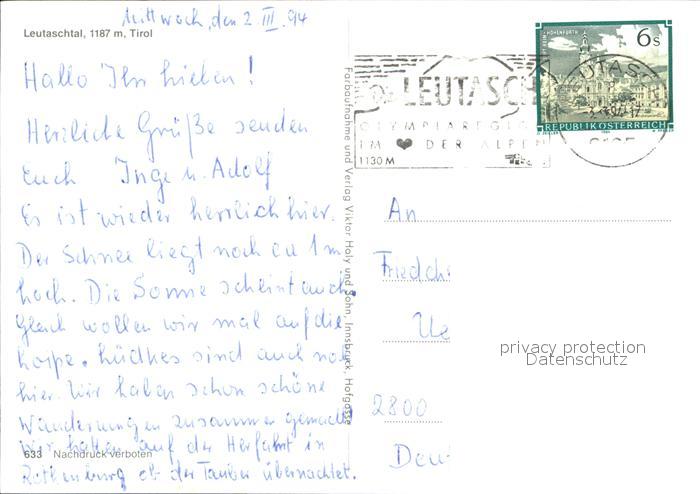 Mittwoch, den 2. III. 94
Leutaschtal, 1187 m, Tirol
Hallo Ihr Lieben!
Herzliche Grüße senden
Euch Inge u. Adolf
Es ist wieder herrlich hier.
Der Schnee liegt noch ca 1 m
hoch. Die Sonne scheint auch.
Gleich wollen wir mal auf die
hier. Wir haben schon schöne
Wanderungen zusammen gemacht
Wir hatten auf der Herfahrt in
Rothenburg ob der Tauber übernachtet.
633 Nachdruck verboten
Farbaufnahme und Verlag Viktor Holy und Sohn, Innsbruck, Hofgasse
6 s
REPUBLIK ÖSTERREICH
LEUTASCH
OLYMPIAREGION
IM DER ALPEN
1130 M
An
Friedch
Ue
privacy protection
Datenschutz
2800
Deut